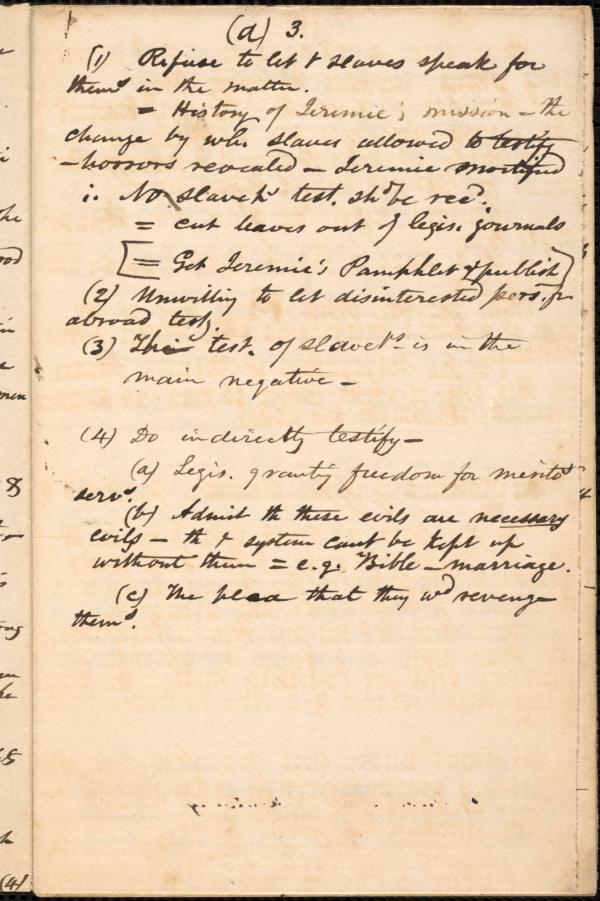 (d) 3.
(1) Refuse to let t slaves speak for
thems in the matter.
= History of Jeremie's mission - the
change by whh. slaves allowed to testify
- horrors revealed - Jeremie mortified
i. No slavehs test. shd be recd.
= cut leaves out of legis. journals
[= Get Jeremie's Pamphlet & publish]
(2) Unwilling to let disinterested pers. fr
abroad testy.
(3) The test. of slavehs is in the
main negative -
(4) Do indirectly testify -
(a) Legis. granting freedom for meritos
servs.
(b) Admit th these evils are necessary
evils - th t system cant be kept up
without them = e.g. Bible - marriage.
(c) The plea that they wd revenge
thems.